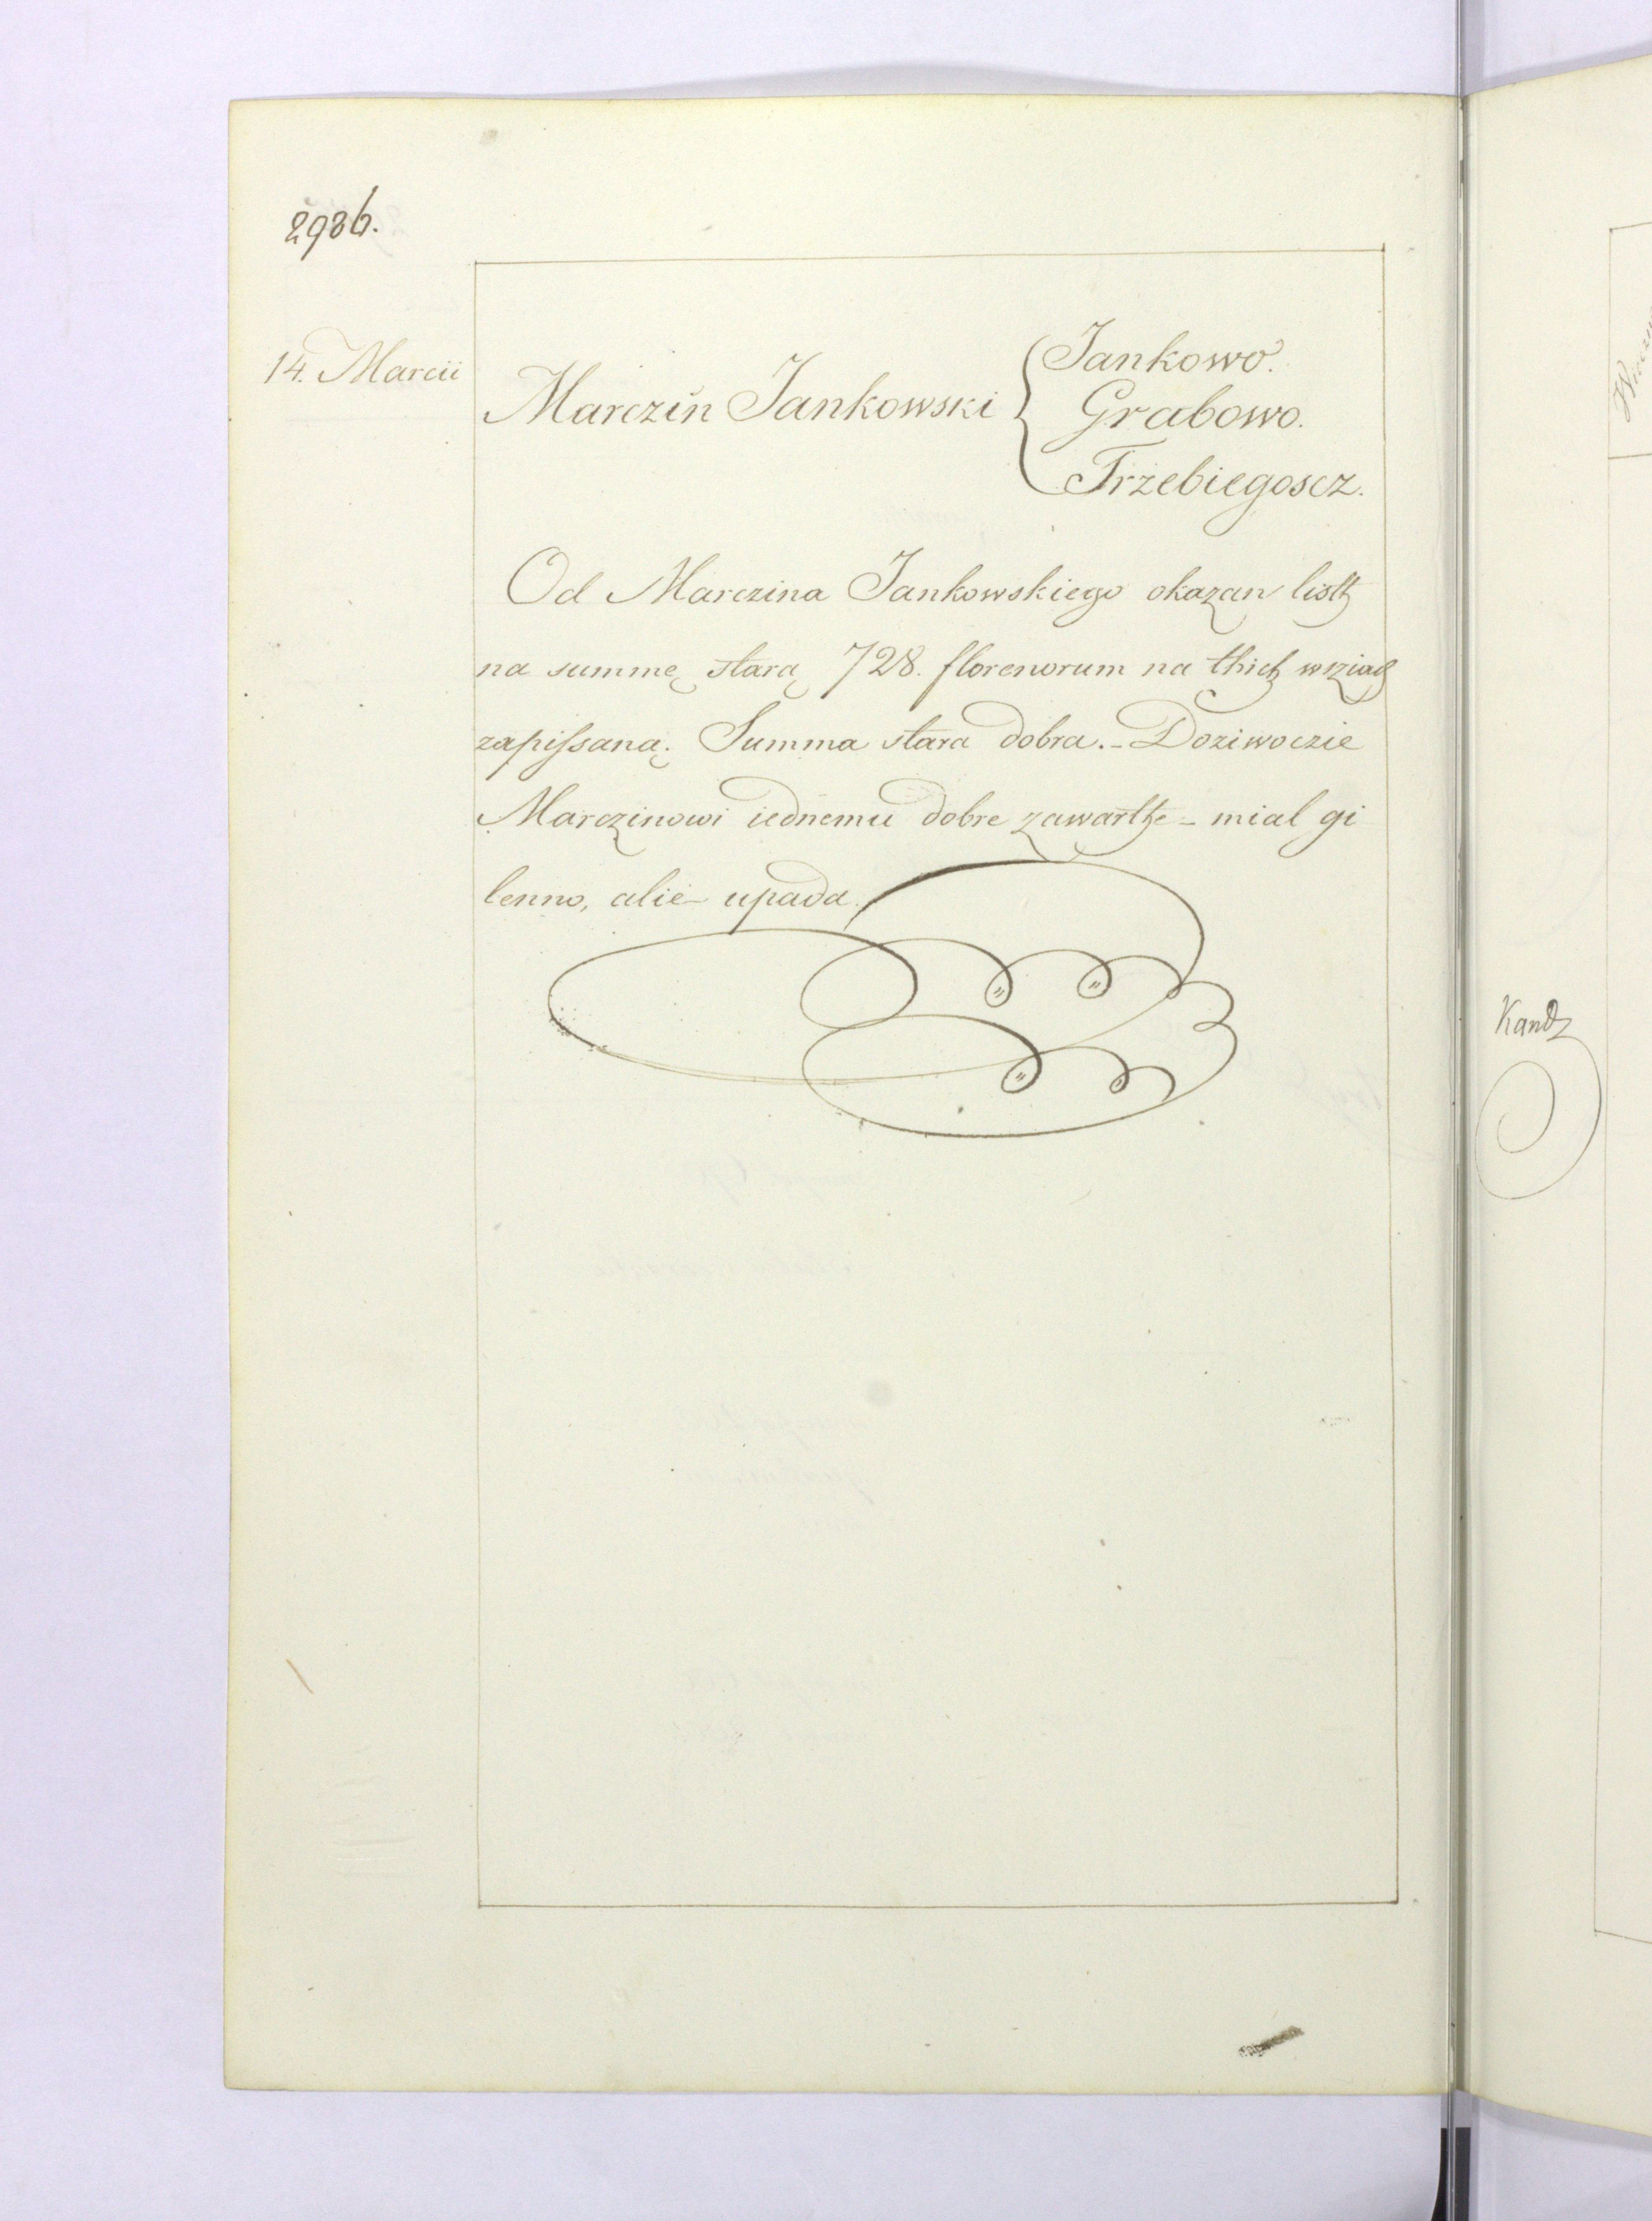 2936.
14. Marcii
Marczin Jankowski
Jankowo.
Grabowo.
Trzebiegoscz.
Od Marczina Jankowskiego okazan listh
na summę starą 728. florenorum na thich
zapissaną. Summa stara dobra. - Doziwoczie
Marczinowi iednemu dobre zawarthe - mial gi
lenno, alie - upada.
Kandz